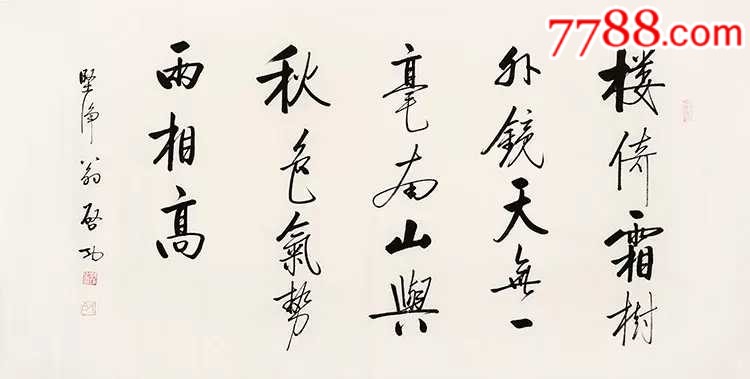 7788.com
楼倚霜樹
外鏡天無一
毫南山與
秋色氣勢
兩相高
堅淨翁啓功